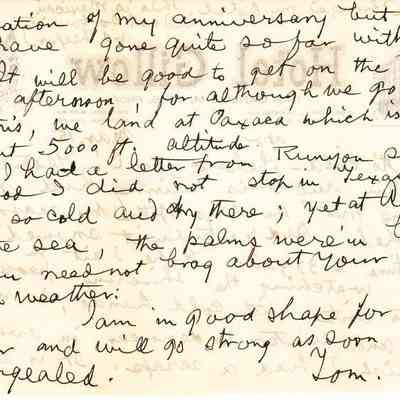 ation of my anniversary but
have gone quite so far with
It will be good to get on the
afternoon, for although we go
this, we land at Oaxaca which is
ut 5000 ft. altitude.
I had a letter from Runyon s
od I did not stop in Texas
so cold and dry there; yet at
e sea, the palms were in
ou need not brag about your
s weather.
I am in good shape for
r and will go strong as soon
ngealed. Tom.